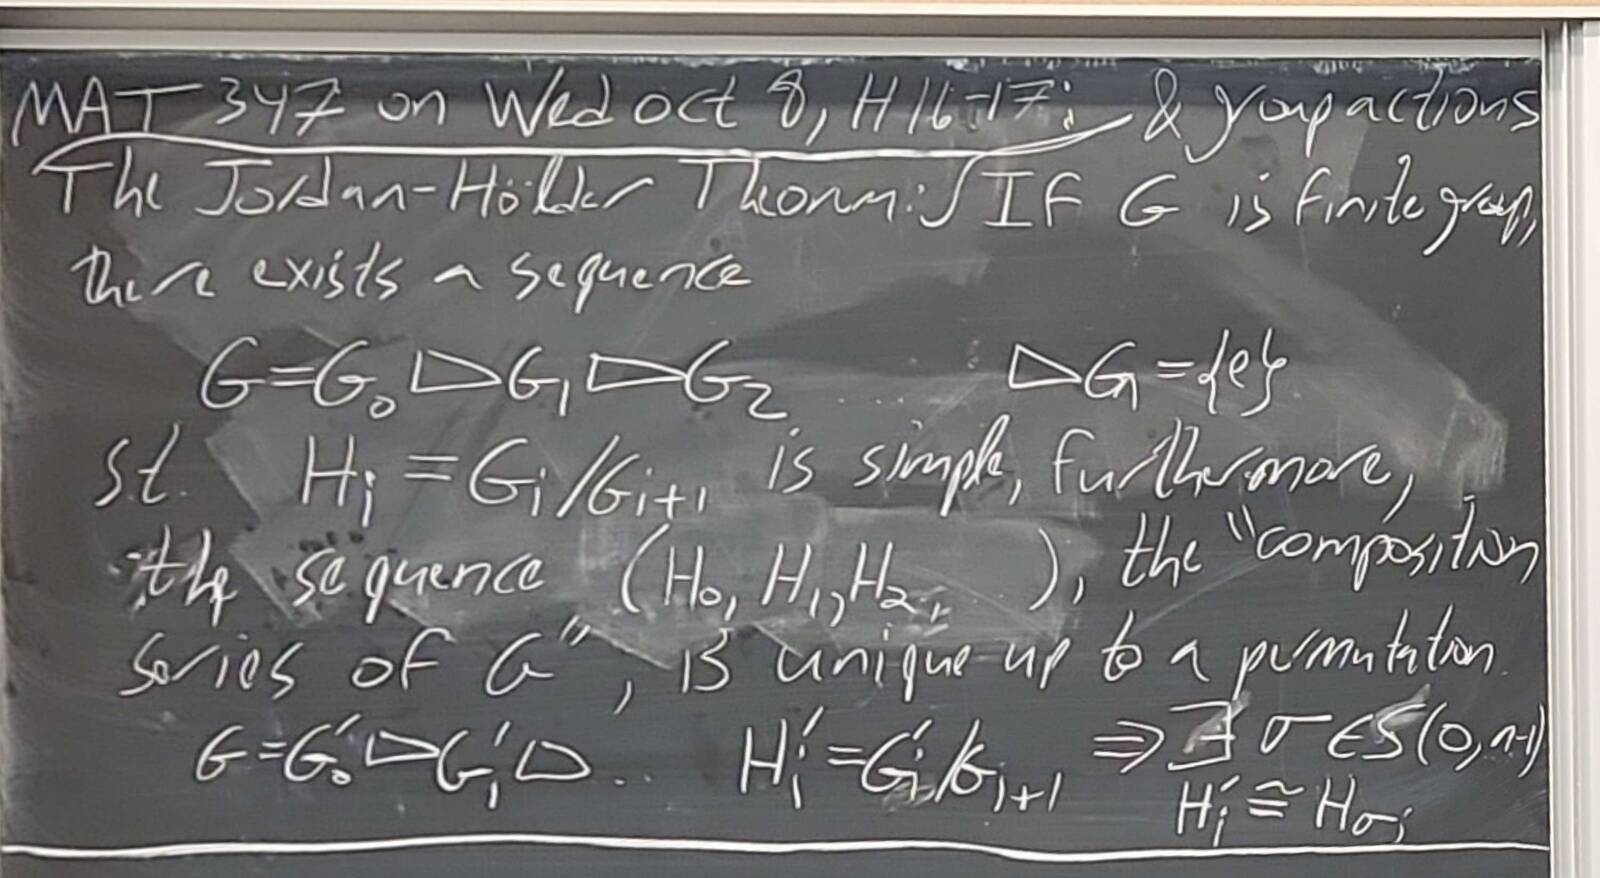 MAT 347 on Wed oct 8, H16-17: & group actions
The Jordan-Hölder Theorem: If G is finite group,
there exists a sequence
G=G₀ ▷ G₁ ▷ G₂ ... ▷ Gₙ = {e}
st. Hᵢ = Gᵢ/Gᵢ₊₁ is simple, furthermore,
the sequence (H₀, H₁, H₂, ), the "composition
series of G", is unique up to a permutation.
G=G₀' ▷ G₁' ▷ ... Hᵢ' = Gᵢ'/Gᵢ₊₁ ⇒ ∃ σ ∈ S(0,n-1)
Hᵢ' ≅ H_σᵢ